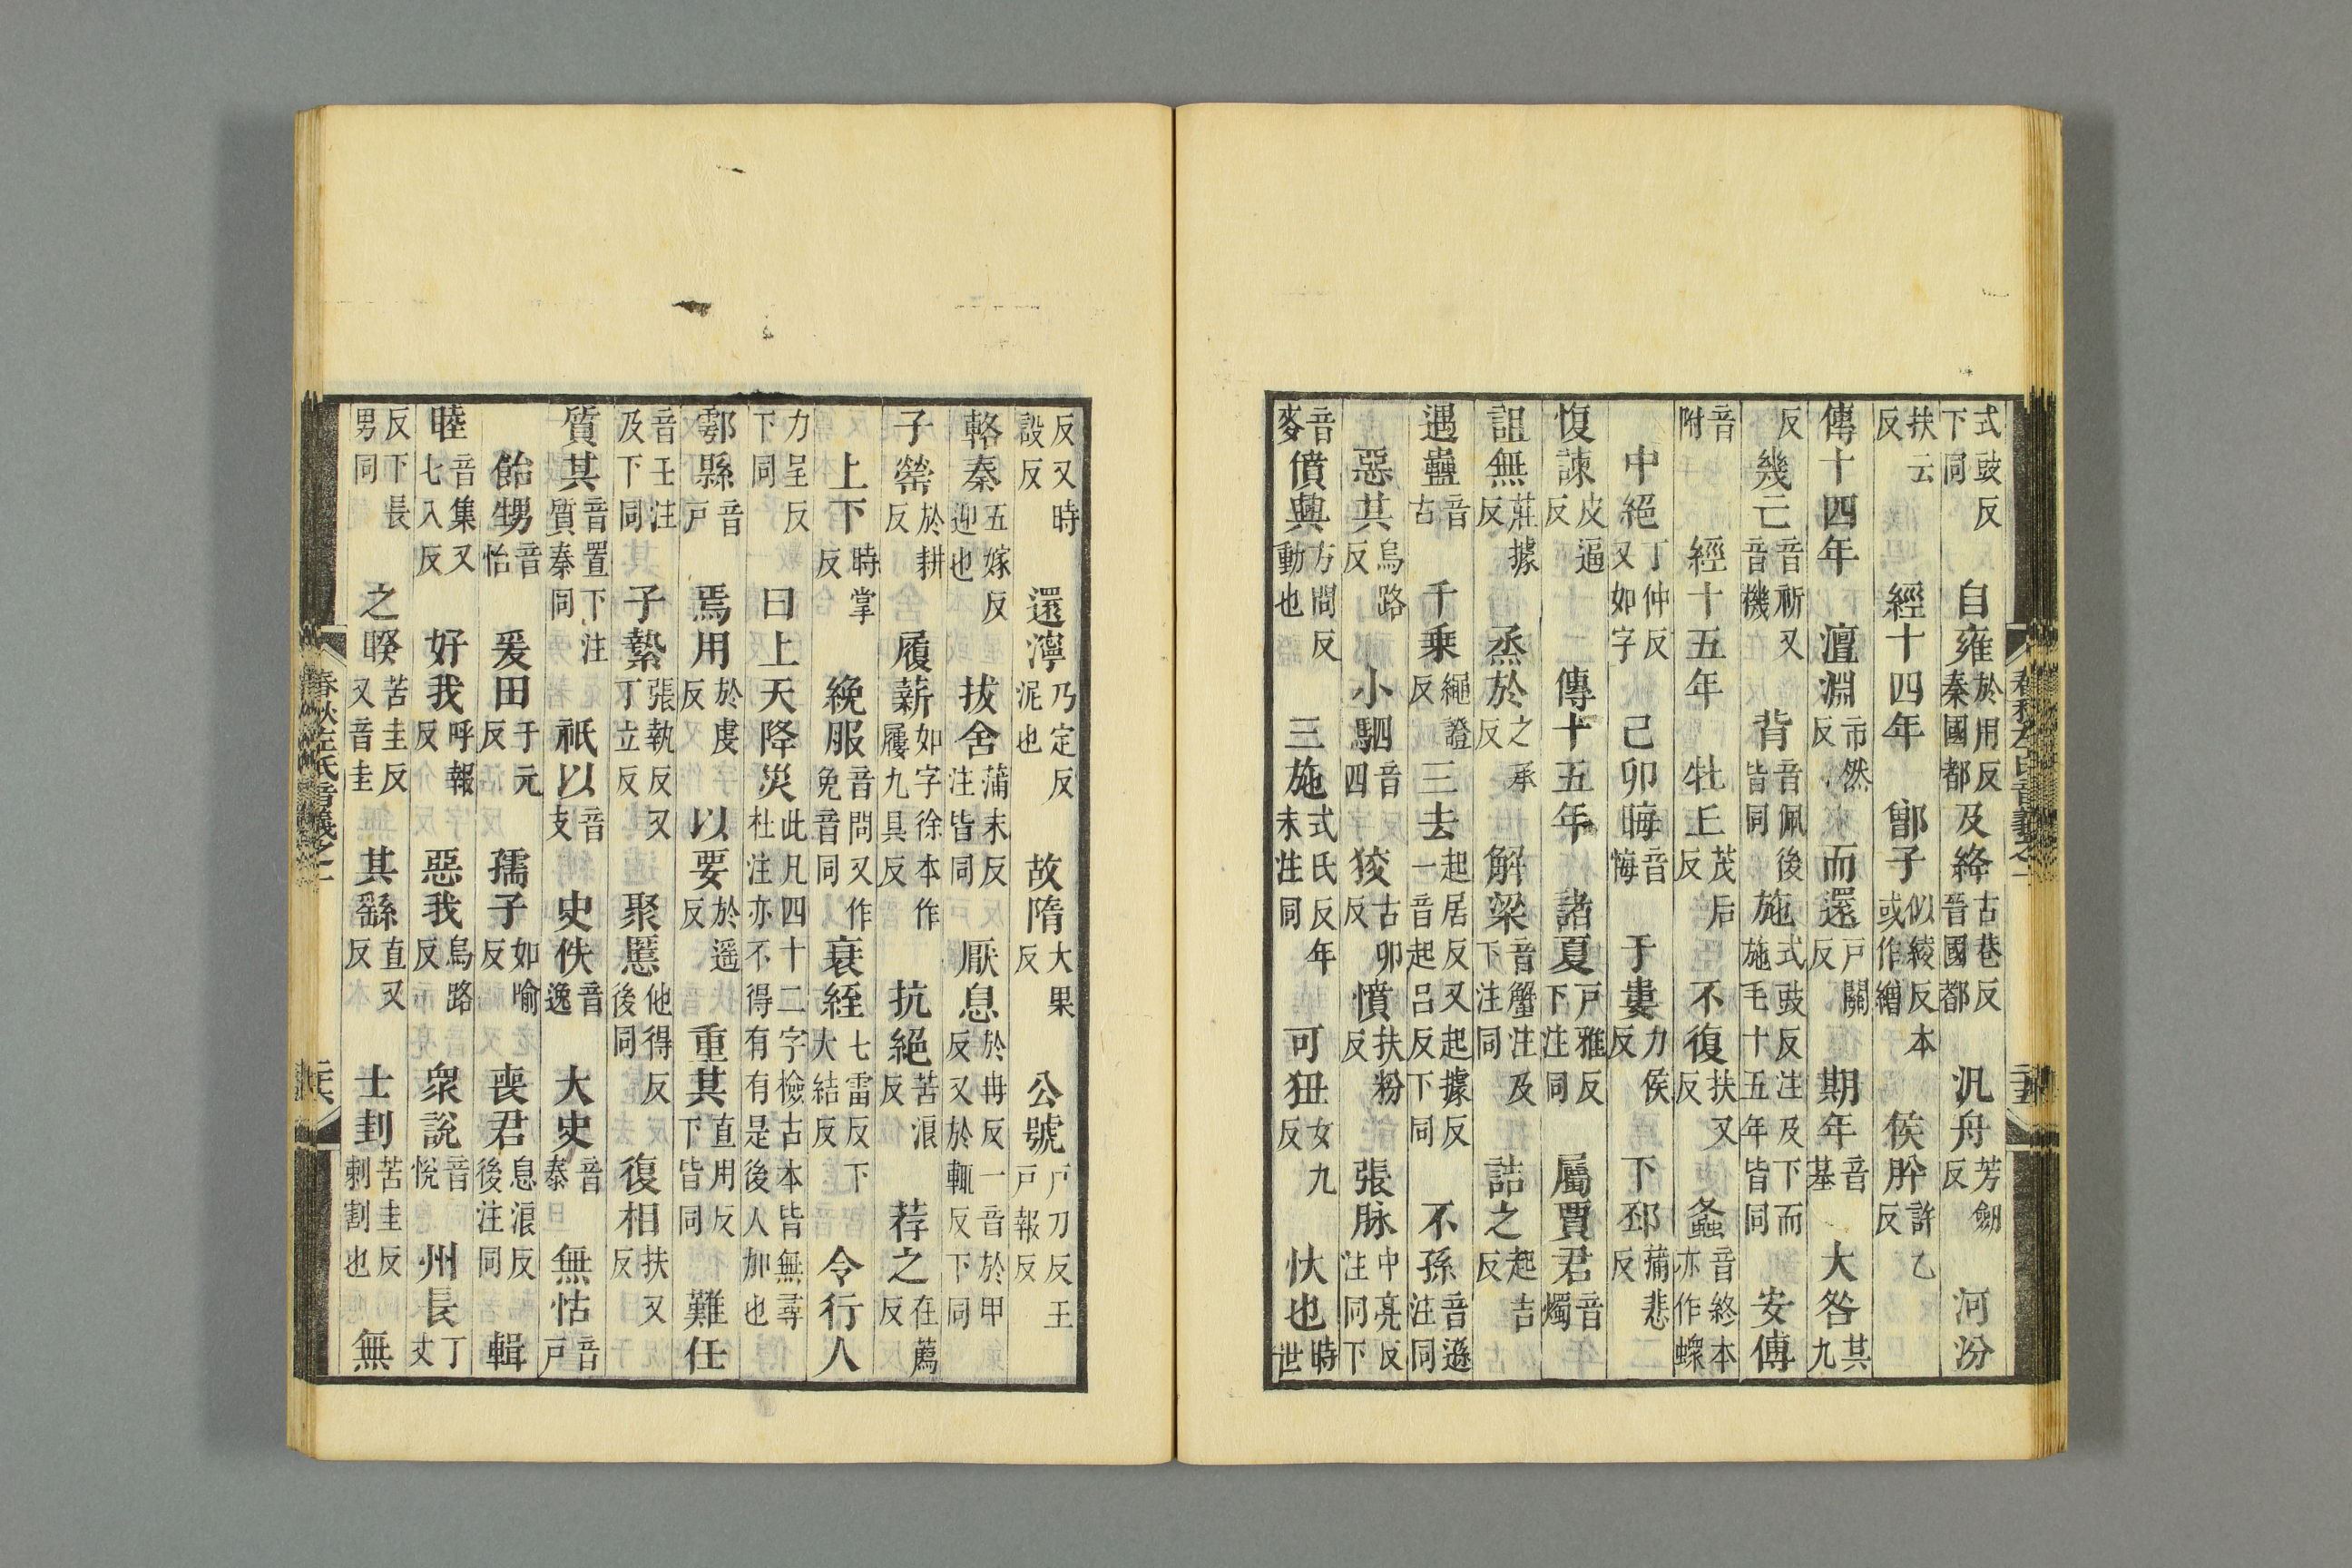 式豉反下同　自雍於用反秦國都及絳古巷反晉國都　汎舟芳劒反　河汾
扶云反　經十四年　鄫子似綾反本或作繒　侯肸許乙反
傳十四年　澶淵市然反　而還戶關反　期年音基　大咎其九
反　幾亡音祈又音機　背音佩後皆同　施式豉反注及下而施毛十五年皆同　安傅
音附　經十五年　牡丘茂后反　不復扶又反　螽音終本亦作蠭
中絕丁仲反又如字　己卯晦音悔　于婁力侯反　下邳蒲悲反
愎諫皮逼反　傳十五年　諸夏戶雅反下注同　屬賈君音燭
詛無莊據反　烝於之承反　解梁音蟹注及下注同　詰之起吉反
遇蠱音古　千乘繩證反　三去起居反又起據反一音起呂反下同　不孫音遜注同
惡其烏路反　小駟音四　狡古卯反　憤扶粉反　張脉中亮反注同下
音麥　僨興方問反動也　三施式氏反年末注同　可狃女九反　忕也時世
反又時設反　還濘乃定反泥也　故隋大果反　公號戶刀反王戶報反
輅秦五嫁反迎也　拔舍蒲末反注皆同　厭息於冉反一音於甲反又於輒反下同
子罃於耕反　履薪如字徐本作屨九具反　抗絕苦浪反　荐之在薦反
上下時掌反　絻服音問又作免音同　衰絰七雷反下大結反　令行人
力呈反下同　曰上天降災此凡四十二字檢古本皆無尋杜注亦不得有有是後人加也
鄠縣音戶　焉用於虔反　以要於遥反　重其直用反下皆同　難任
音壬注及下同　子縶張執反又丁立反　聚慝他得反後同　復相扶又反
質其音置下注質秦同　祇以音支　史佚音逸　大史音泰　無怙音戶
飴甥音怡　爰田于元反　孺子如喻反　喪君息浪反後注同　輯
睦音集又七入反　好我呼報反　惡我烏路反　衆說音悅　州長丁丈
反下長男同　之睽苦圭反又音圭　其繇直又反　士刲苦圭反刺割也　無
春秋左氏音義之一